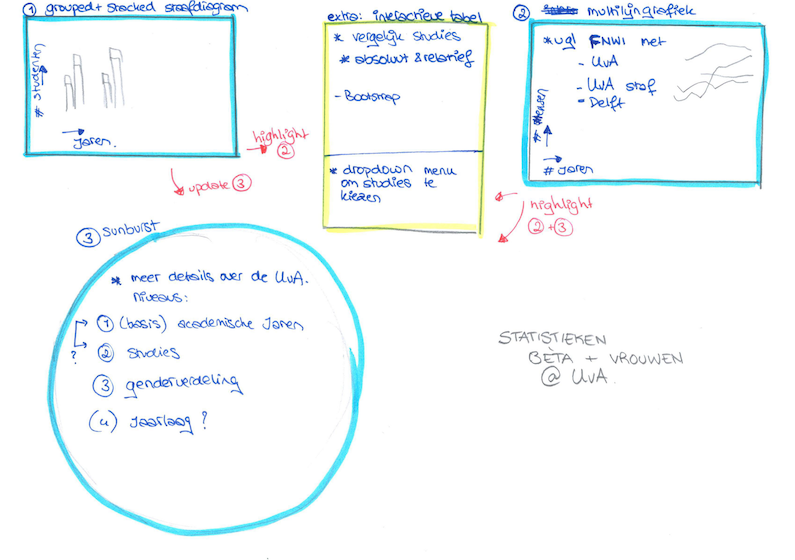 ① grouped + stacked staafdiagram
# studenten
Jaren.
highlight
②
update ③
extra: interactieve tabel
* vergelijk studies
* absoluut & relatief
- Bootstrap
* dropdown menu
om studies te
kiezen
② multilijngrafiek
* vgl FNWI met
- UvA
- UvA staf
- Delft
# mensen
# Jaren
highlight
② + ③
③ sunburst
* meer details over de UvA.
niveaus:
① (basis) academische Jaren
?
② studies
③ genderverdeling
(4) Jaarlaag ?
STATISTIEKEN
BÈTA + VROUWEN
@ UvA.